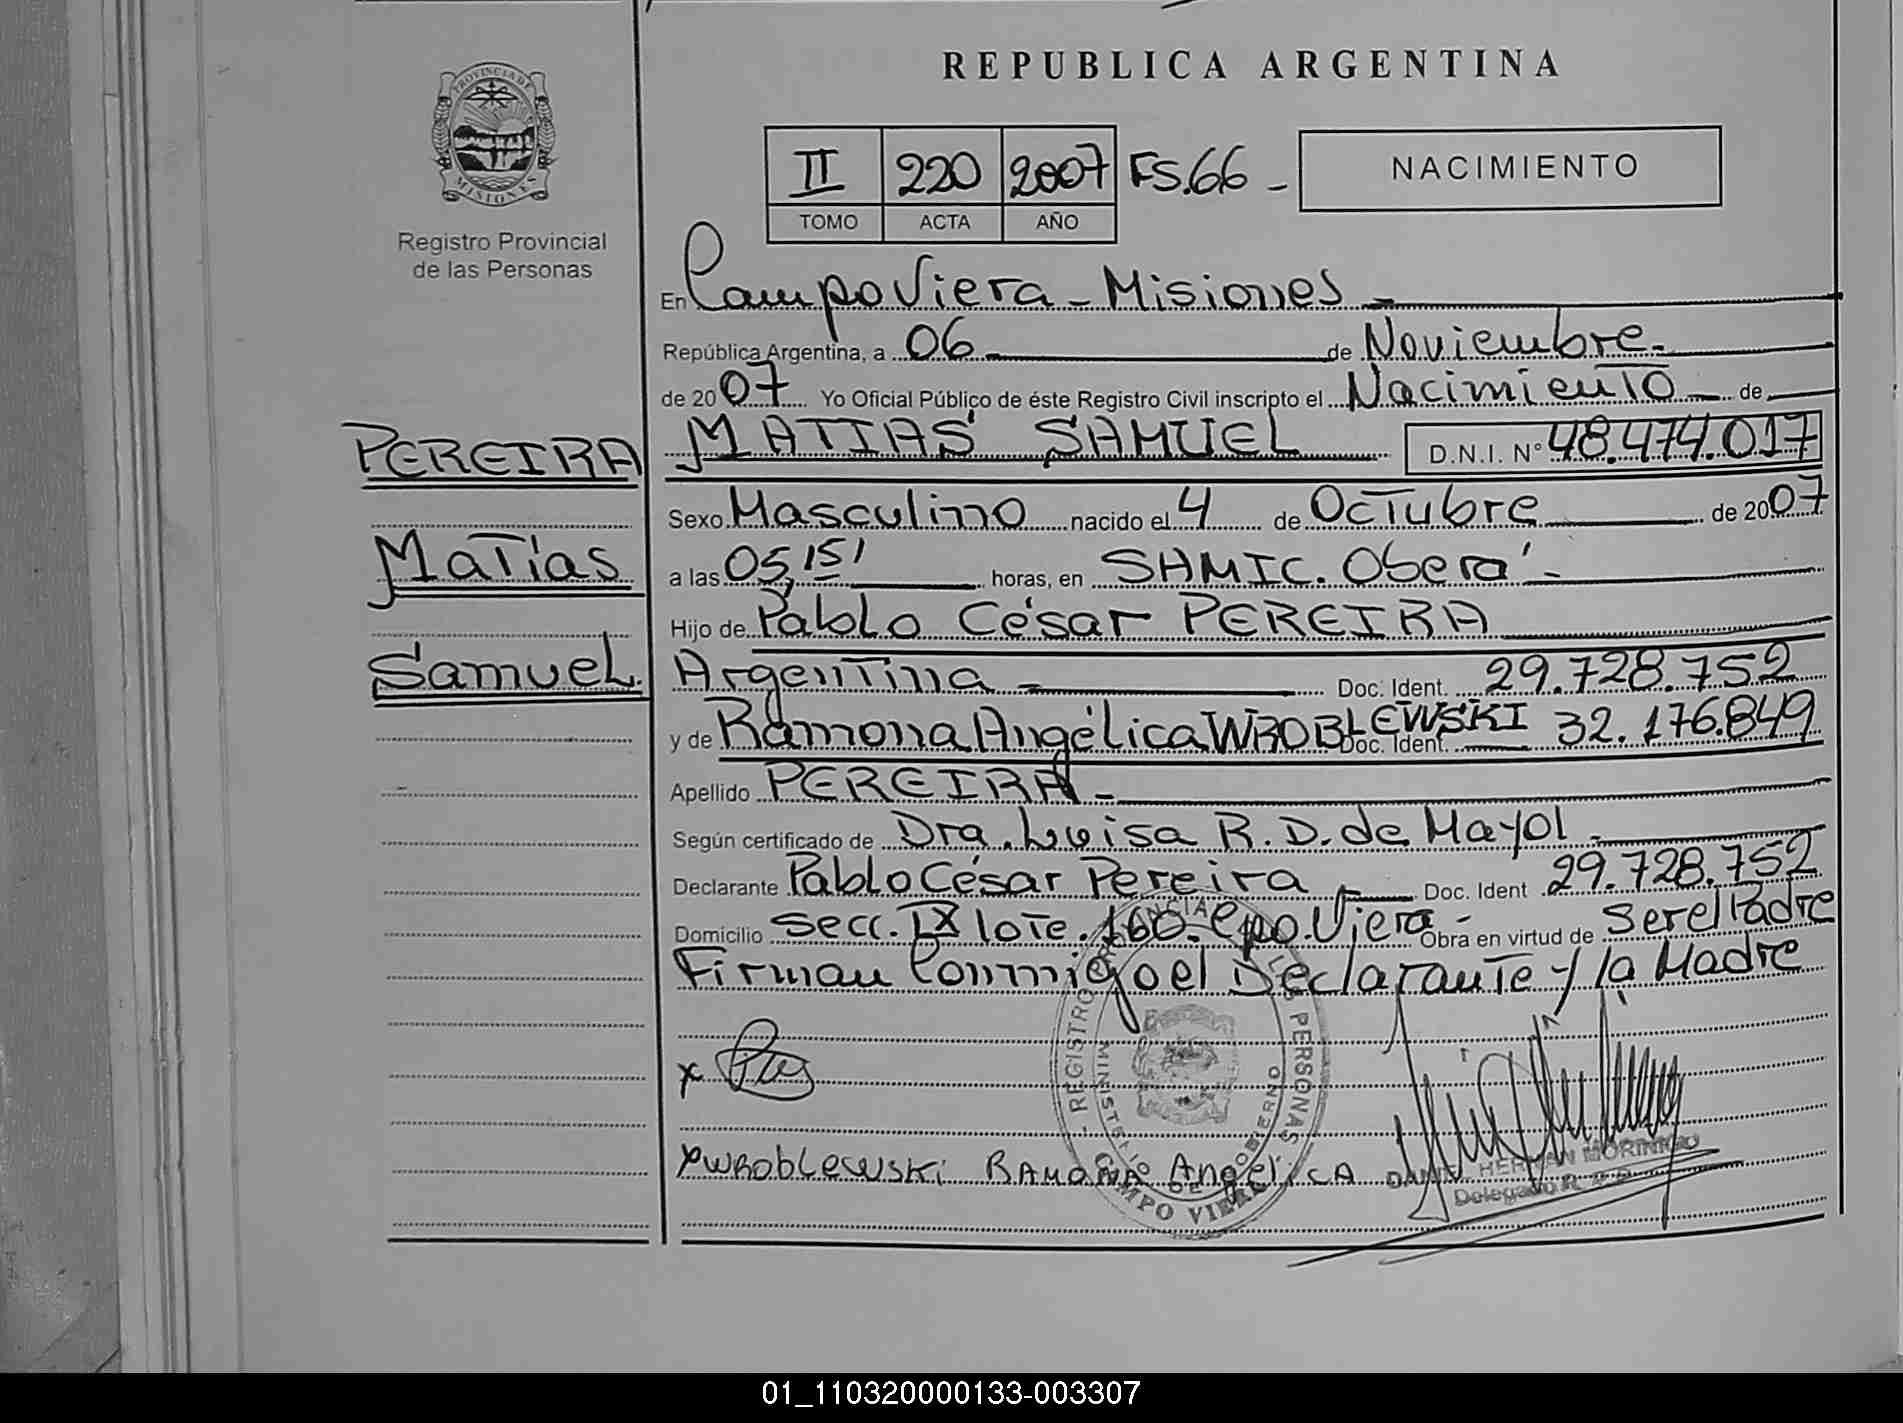 PROVINCIA DE
MISIONES
Registro Provincial
de las Personas
PEREIRA
Matías
Samuel.
REPUBLICA ARGENTINA
II 220 2007 FS.66 -
TOMO ACTA AÑO
NACIMIENTO
En Campo Viera - Misiones -
República Argentina, a 06 de Noviembre.
de 2007 Yo Oficial Público de éste Registro Civil inscripto el Nacimiento de
MATIAS SAMUEL D.N.I. N° 48.474.017
Sexo Masculino nacido el 4 de Octubre de 2007
a las 05,15' horas, en SAMIC. Oberá -
Hijo de Pablo César PEREIRA
Argentina - Doc. Ident. 29.728.752
y de Ramona Angélica WROBLEWSKI Doc. Ident. 32.176.849
Apellido PEREIRA -
Según certificado de Dra. Luisa R. D. de Mayol -
Declarante Pablo César Pereira Doc. Ident 29.728.752
Domicilio Secc. IX lote. 160. Cpo. Viera - Obra en virtud de Ser el Padre
Firman Conmigo el Declarante y la Madre
REGISTRO PROVINCIAL DE LAS PERSONAS
MINISTERIO DE GOBIERNO
CAMPO VIERA
x
x WROBLEWSKI RAMONA ANGELICA
DANIEL HERNAN MORINIGO
Delegado R. P. P.
01_110320000133-003307